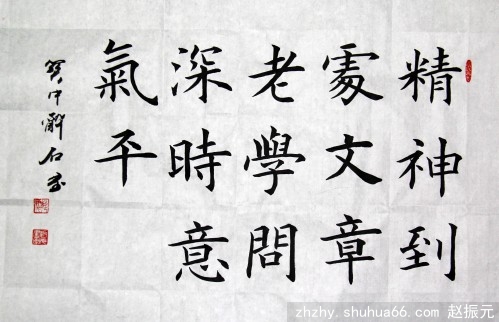 精神到
處文章
老學問
深時意
氣平
zhzhy.shuhua66.com 赵振元